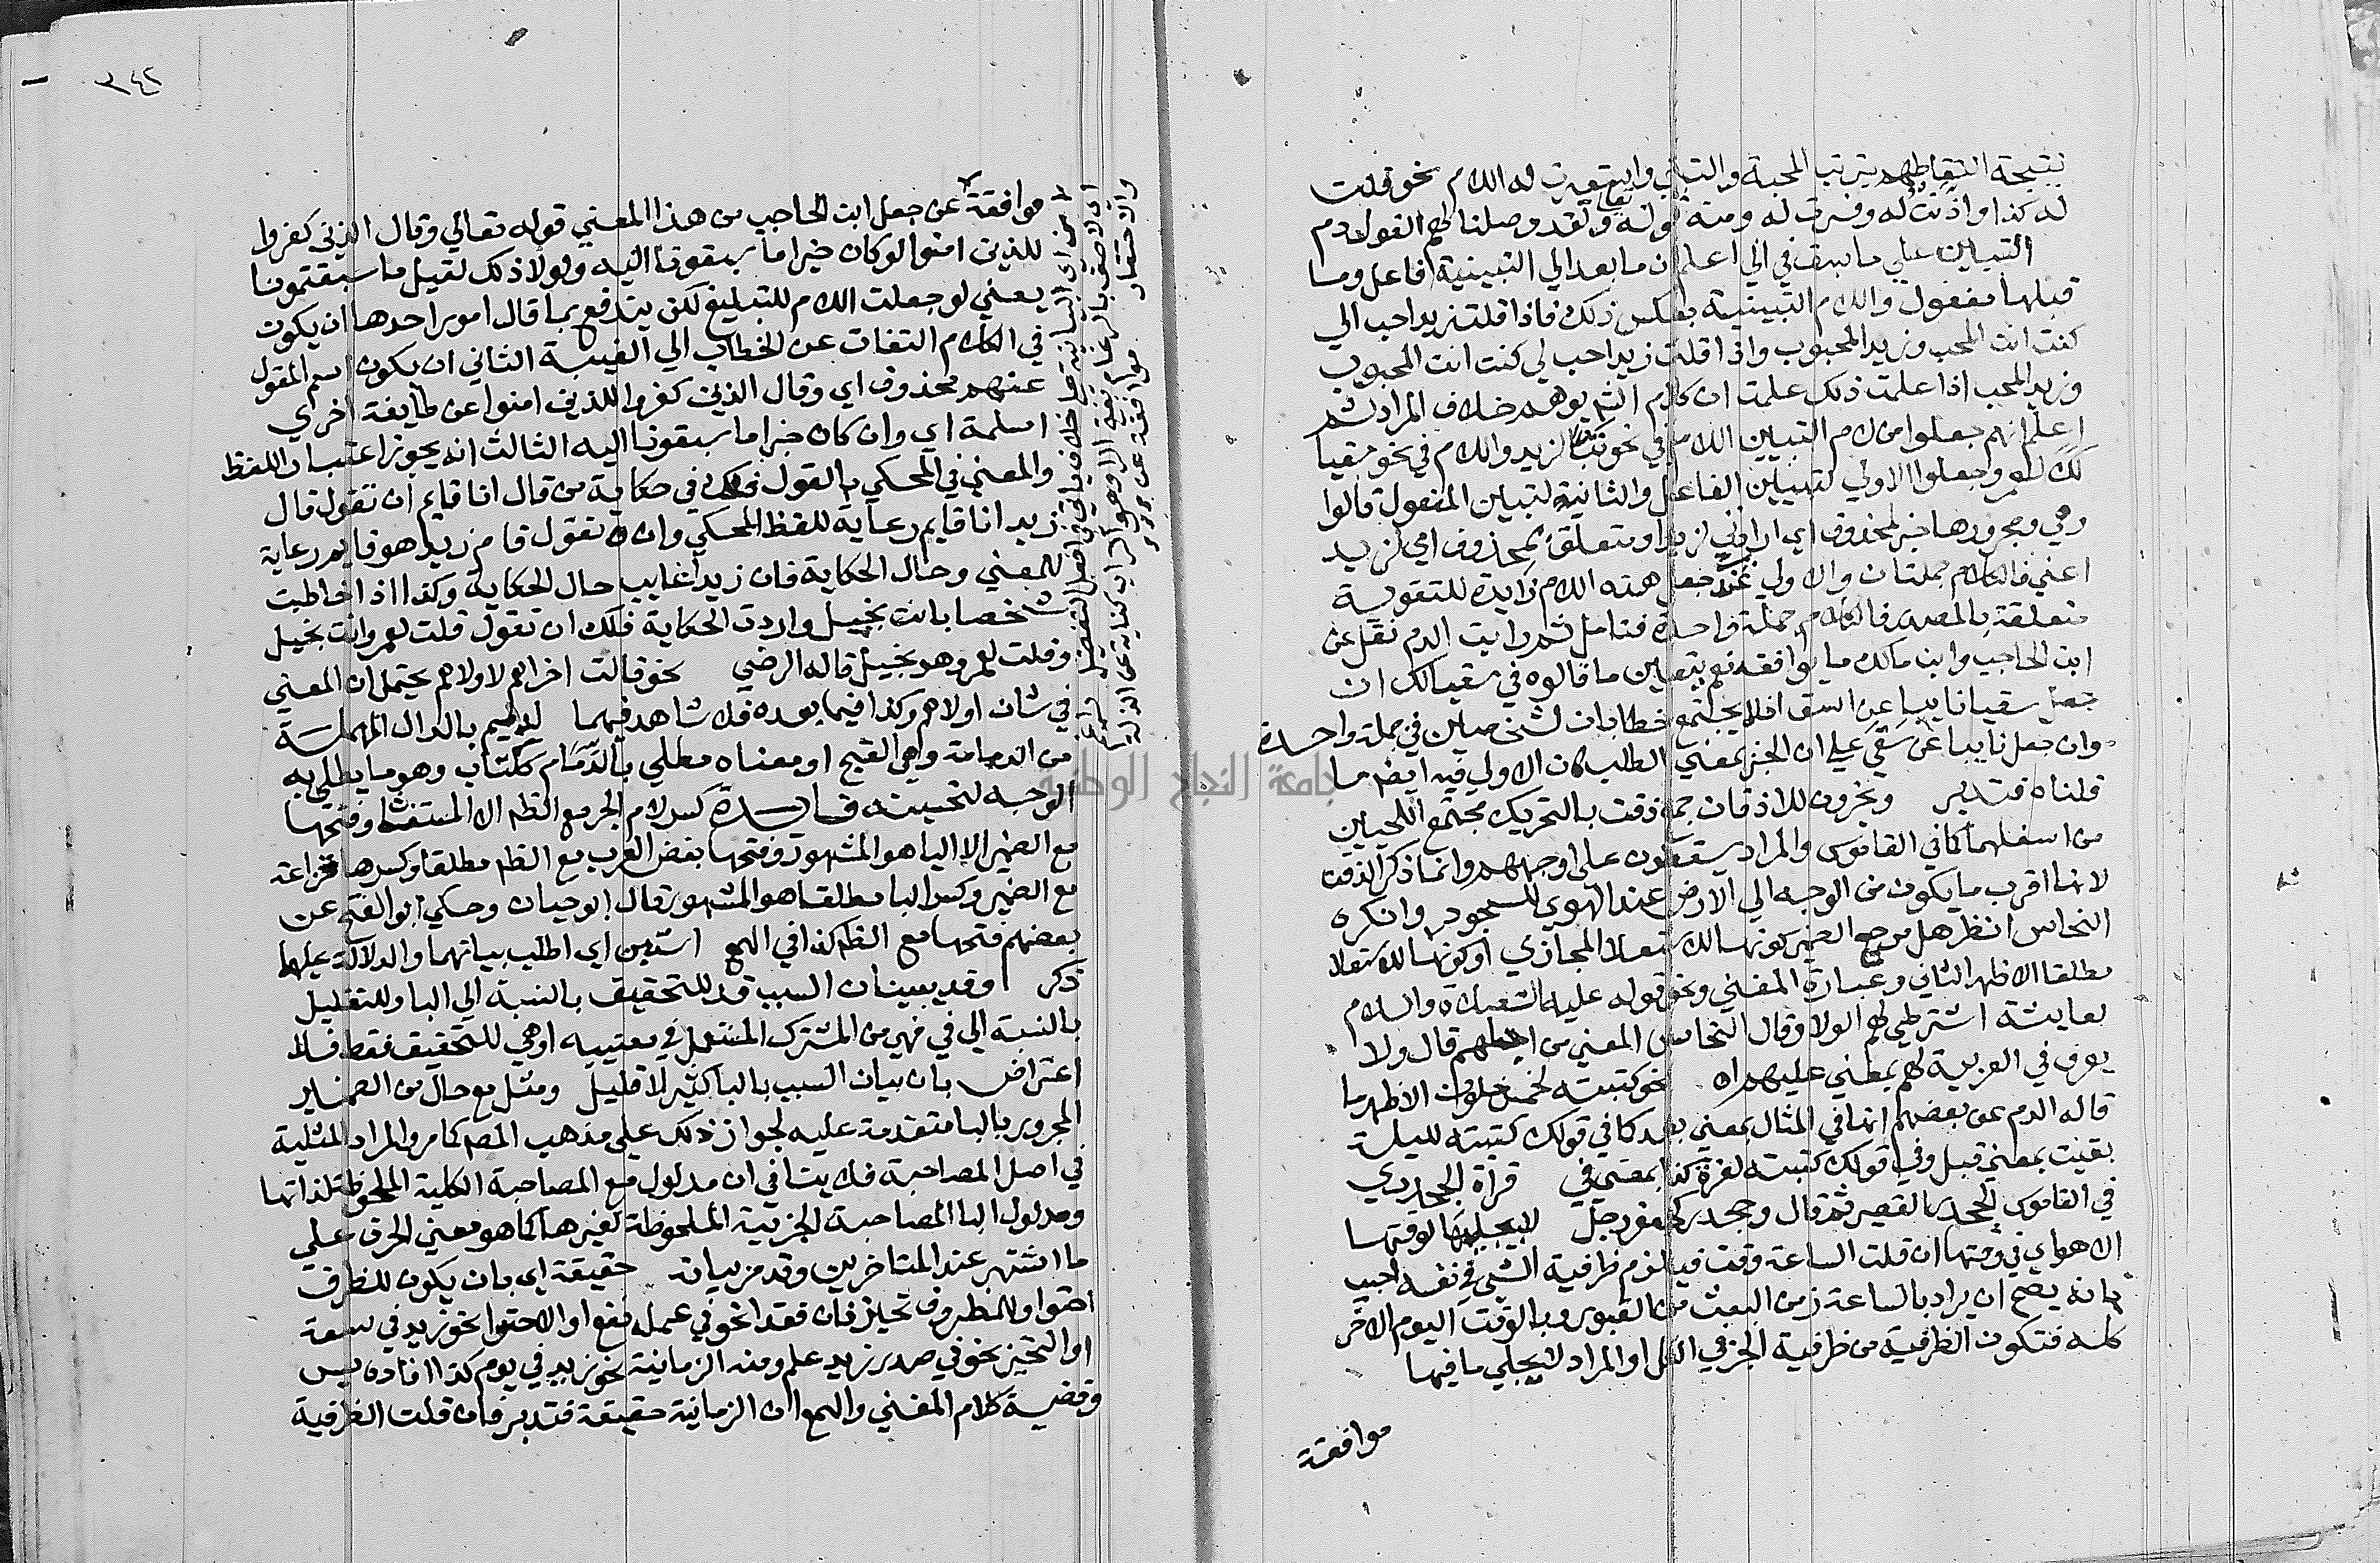 نتيجة التقاطهم يترتب المحبة والتبني والتعدية له اللام نحو قلت
له كذا واذنت له وفسرت له ومنه قوله تعالى ولقد وصلنا لهم القول دم
التبيين على ما سبق في الى اعلم ان ما بعد الي التبيينية فاعل وما
قبلها مفعول واللام التبيينية بعكس ذلك فاذا قلت زيد احب الي
كنت انت المحب وزيد المحبوب واذا قلت زيد احب لي كنت انت المحبوب
وزيد المحب اذا علمت ذلك علمت ان كلام الشم يوهم خلاف المراد ثم
اعلم انهم جعلوا من لام التبيين اللام في نحو تبا لزيد واللام في نحو سقيا
لك لعمرو وجعلوا الاولي لتبيين الفاعل والثانية لتبيين المفعول قالوا
وهي ومجرورها خبر لمحذوف اي ارادتي لزيد او متعلق بمحذوف اي لزيد
اعني فالكلام جملتان والاولي عندي جعل هذه اللام زايدة للتقوية
متعلقة بالمصدر فالكلام جملة واحدة فتامل ثم رايت الدم نقل عن
ابن الحاجب وابن مالك ما يوافقه نعم يتعين ما قالوه في سقيا لك ان
جعل سقيا نايبا عن اسق اذ لا يجتمع خطابان لشخصين في جملة واحدة
وان جعل نايبا عن سقي على ان الخبر بمعني الطلب كان الاولي فيه ايضا ما
قلناه فتدبر ويخرون للاذقان جمع ذقن بالتحريك مجتمع اللحيين
من اسفلهما كما في القاموس والمراد يسقطون على اوجههم وانما ذكر الذقن
لانها اقرب ما يكون من الوجه الي الارض عند الهوي للسجود وانكره
النحاس انظر هل مرجع الضمير كونها للاستعلا المجازي او كونها للاستعلا
مطلقا الاظهر الثاني وعبارة المغني ونحو قوله عليه الصلاة والسلام
لعايشة اشترطي لهم الولا وقال النحاس المعني من اجلهم قال ولا
يعرف في العربية لهم بمعني عليهم اه نحو كتبته لخمس خلون الاظهر ما
قاله الدم عن بعضهم انها في المثال بمعني بعد كما في قولك كتبته لليلة
بقيت بمعني قبل وفي قولك كتبته لغرة كذا بمعني في قراة الجحدري
في القاموس الجحدر القصير ثم قال وجحدر كجعفر رجل لا يجليها لوقتها
الا هو اي في وقتها ان قلت الساعة وقت فيلزم ظرفية الشي في نفسه اجيب
بانه يصح ان يراد بالساعة زمن البعث من القبور وبالوقت اليوم الاخر
كله فتكون الظرفية من ظرفية الجزء في الكل او المراد لا يجلي ما فيها
موافقة
٣٤٢
موافقة عن جعل ابن الحاجب من هذا المعني قوله تعالي وقال الذين كفروا
للذين امنوا لو كان خيرا ما سبقونا اليه ولولا ذلك لقيل ما سبقتمونا
يعني لو جعلت اللام للتبليغ لكن يندفع بما قال امور احدها ان يكون
في الكلام التفات عن الخطاب الي الغيبة الثاني ان يكون اسم المقول
عنهم محذوف اي وقال الذين كفروا للذين امنوا عن طايفة اخري
اسلمة اي وان كان خيرا ما سبقونا اليه الثالث انه يجوز اعتبار اللفظ
والمعني في المحكي بالقول فلك في حكاية من قال انا قايم ان تقول قال
زيد انا قايم رعاية للفظ المحكي وان تقول قام زيد هو قايم رعاية
للمعني وحال الحكاية فان زيدا غايب حال الحكاية وكذا اذا خاطبت
شخصا بانت بخيل واردت الحكاية فلك ان تقول قلت لعمرو انت بخيل
وقلت لعمرو هو بخيل قاله الرضي نحو قالت اخراهم لاولاهم يحتمل ان المعني
في شان اولاهم وكذا فيما بعده فلا شاهد فيهما لدميم بالدال المهملة
من الدمامة وهي القبح او معناه مطلي بالدمام ككتاب وهو ما يطلي به
الوجه لتحسينه فايدة كسر لام الجر مع الظم الا المستغاث وفتحها
مع الضمير الا اليا هو المشهور وفتحها بعض العرب مع الظم مطلقا وكسرها خزاعة
مع الضمير وكسر البا مطلقا هو المشهور قال ابو حيان وحكي ابو الفتح عن
بعضهم فتحها مع الظم كذا في الهمع استبن اي اطلب بيانهما والدلالة عليها
ذكر وقد يبينان السبب قد للتحقيق بالنسبة الي البا وللتقليل
بالنسبة الي في فهي من المشترك المستعمل في معنييه او هي للتحقيق فقط فلا
اعتراض بان بيان السبب بالبا كثير لا قليل ومثل مع حال من الضمير
المجرور بالبا متقدمة عليه لجواز ذلك على مذهب المصم كما مر والمراد المثلية
في اصل المصاحبة فلا ينافي ان مدلول مع المصاحبة الكلية الملحوظة لذاتها
ومدلول البا المصاحبة الجزيية الملحوظة لغيرها كما هو معني الحرف على
ما اشتهر عند المتاخرين وقد مر بيانه حقيقة اي بان يكون للظرف
احتوا وللمظروف تحيز فان فقدا نحو في عمله نفع او الاحتوا نحو زيد في سعة
او التحيز نحو في صدر زيد علم ومنه الزمانية نحو زيد في يوم كذا افاده يس
وقضية كلام المغني والهمع ان الزمانية حقيقة فتدبر فان قلت الظرفية